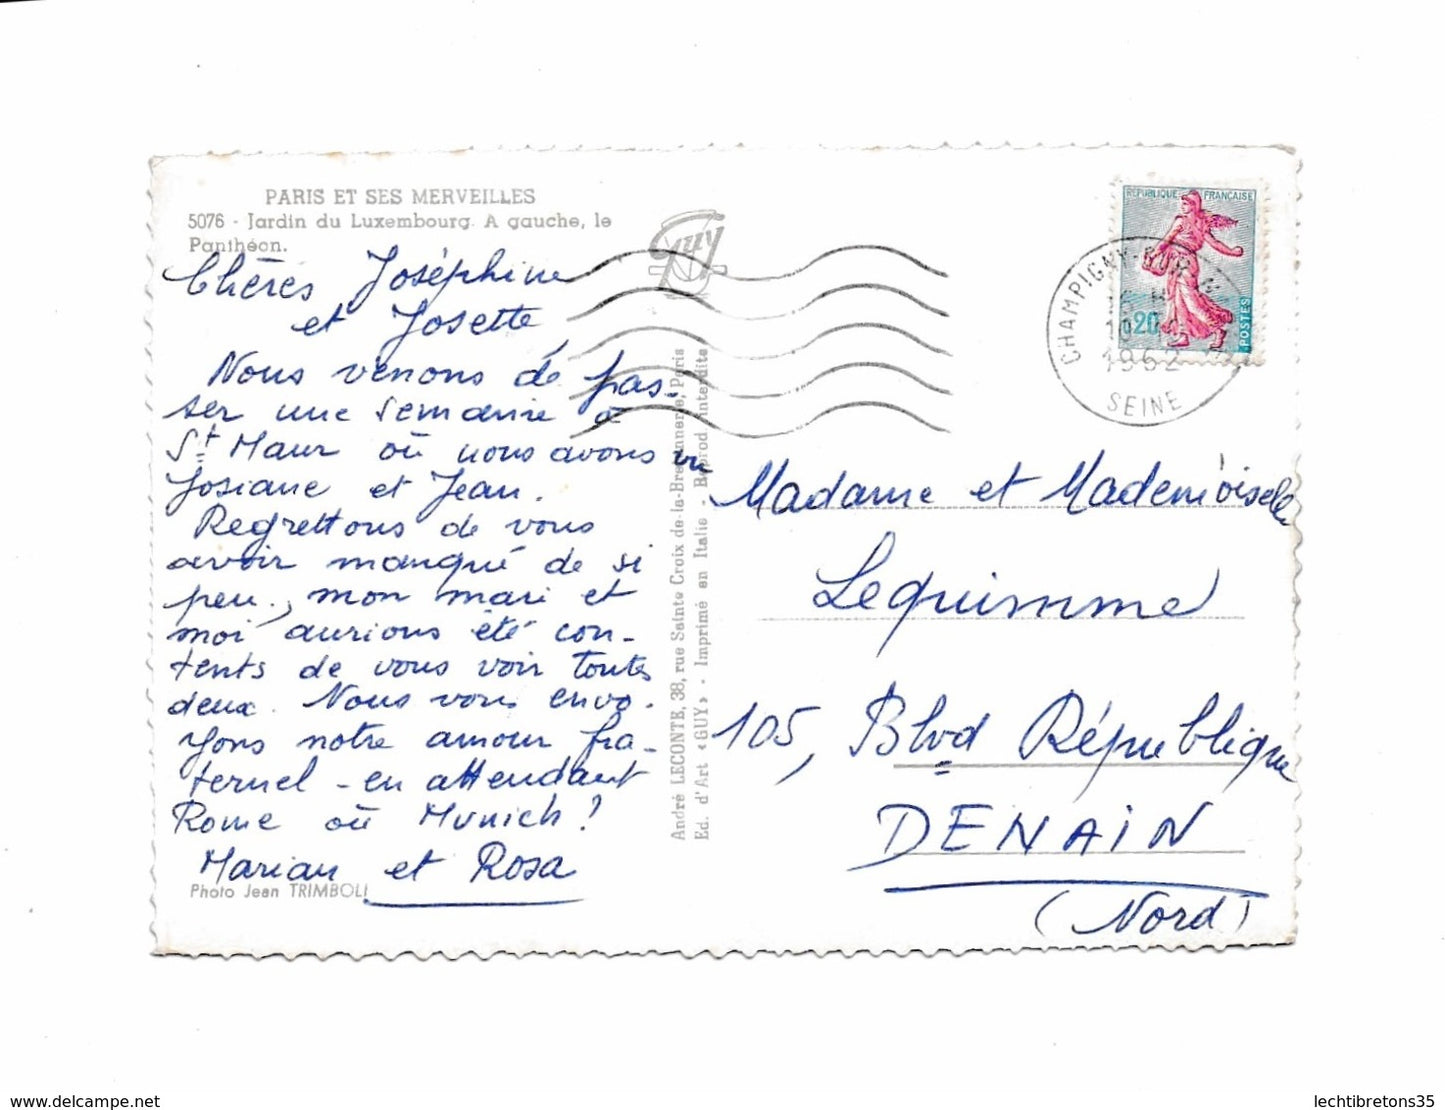 PARIS ET SES MERVEILLES
5076 - Jardin du Luxembourg. A gauche, le
Panthéon.
Guy
Chères Joséphine
et Josette
Nous venons de pas-
ser une semaine à
St Maur où nous avons vu
Josiane et Jean.
Regrettons de vous
avoir manqué de si
peu., mon mari et
moi aurions été con-
tents de vous voir toutes
deux. Nous vous envo-
yons notre amour fra-
ternel - en attendant
Rome où Munich !
Marian et Rosa
Photo Jean TRIMBOLI
André LECONTE, 38, rue Sainte Croix de-la-Bretonnerie, Paris
Ed. d'Art «GUY» - Imprimé en Italie - Reprod. interdite
REPUBLIQUE FRANCAISE
0,20
POSTES
CHAMPIGNY-SUR
1962
SEINE
Madame et Mademoiselle
Lequimme
105, Blvd République
DENAIN
(Nord)
www.delcampe.net
lechtibretons35